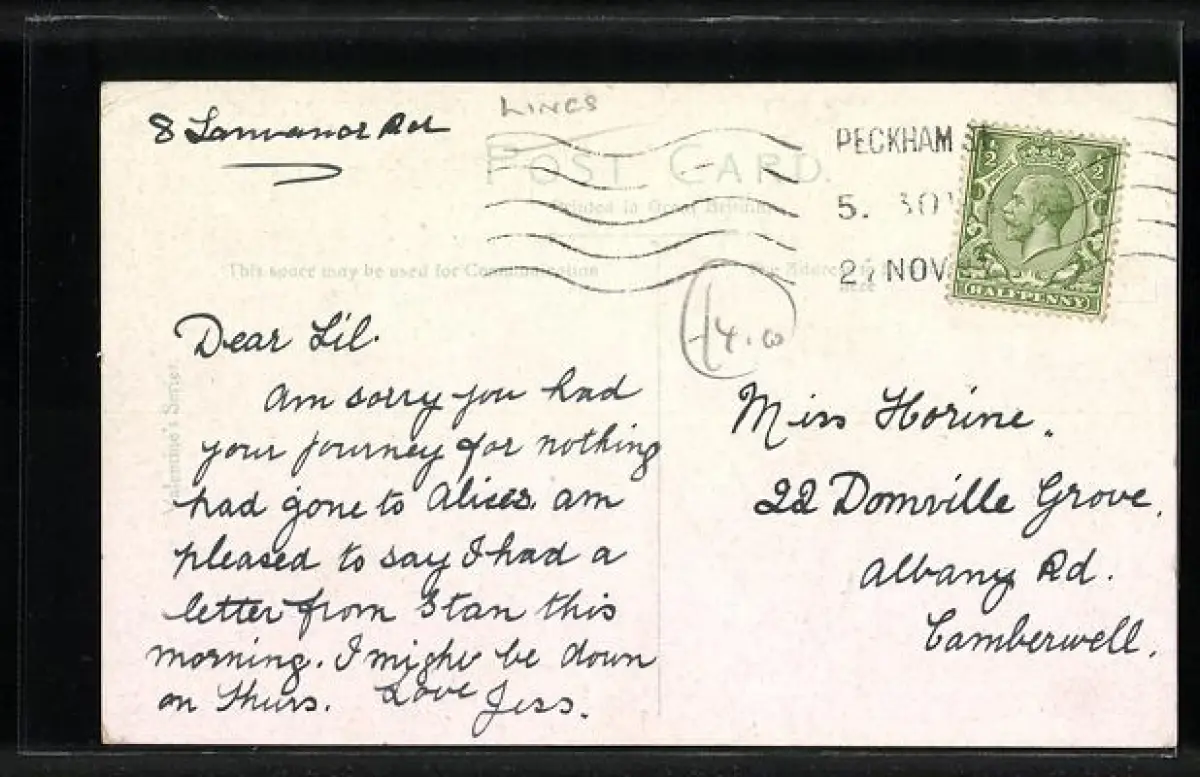 LINCS
8 Lanvanor Rd
POST CARD.
Printed in Great Britain
PECKHAM
5. 30
NOV
This space may be used for Communication
The Address to
here
½ ½
HALFPENNY
14.00
Valentine's Series
Dear Lil.
Am sorry you had
your journey for nothing
had gone to Alices. am
pleased to say I had a
letter from Stan this
morning. I might be down
on Thurs. Love Jess.
Miss Horine.
22 Domville Grove,
Albany Rd.
Camberwell.